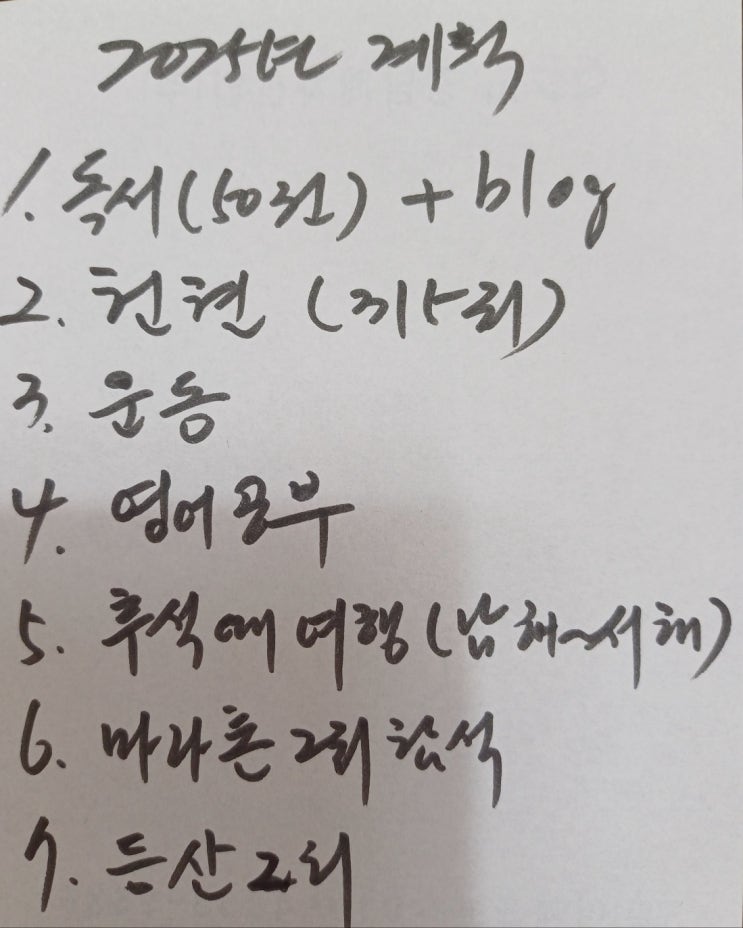 2025년 계획
1. 독서(50권) + blog
2. 헌혈 (5회)
3. 운동
4. 영어공부
5. 추석때 여행(남해~서해)
6. 마라톤 2회 참석
7. 등산 2회